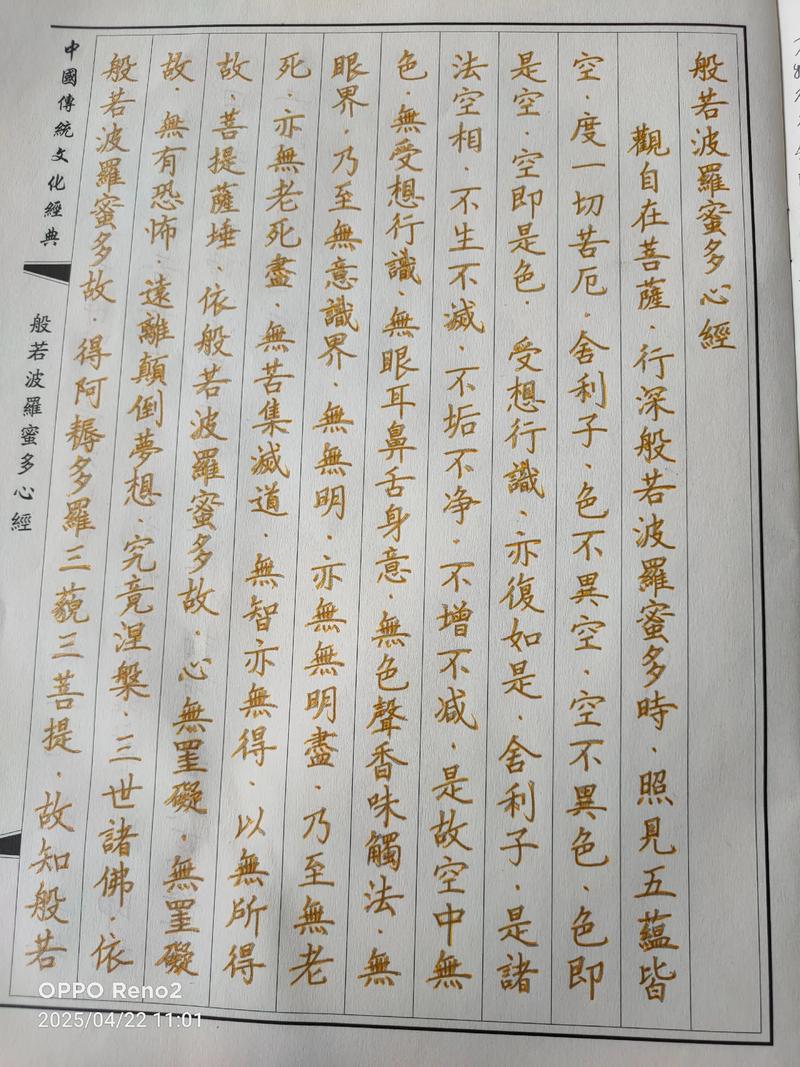 般若波羅蜜多心經
觀自在菩薩．行深般若波羅蜜多時．照見五蘊皆
空．度一切苦厄．舍利子．色不異空．空不異色．色即
是空．空即是色．受想行識．亦復如是．舍利子．是諸
法空相．不生不滅．不垢不净．不增不减．是故空中無
色．無受想行識．無眼耳鼻舌身意．無色聲香味觸法．無
眼界．乃至無意識界．無無明．亦無無明盡．乃至無老
死．亦無老死盡．無苦集滅道．無智亦無得．以無所得
故．菩提薩埵．依般若波羅蜜多故．心無罣礙．無罣礙
故．無有恐怖．遠離顛倒夢想．究竟涅槃．三世諸佛．依
般若波羅蜜多故．得阿耨多羅三藐三菩提．故知般若
中國傳統文化經典
般若波羅蜜多心經
OPPO Reno2
2025/04/22 11:01